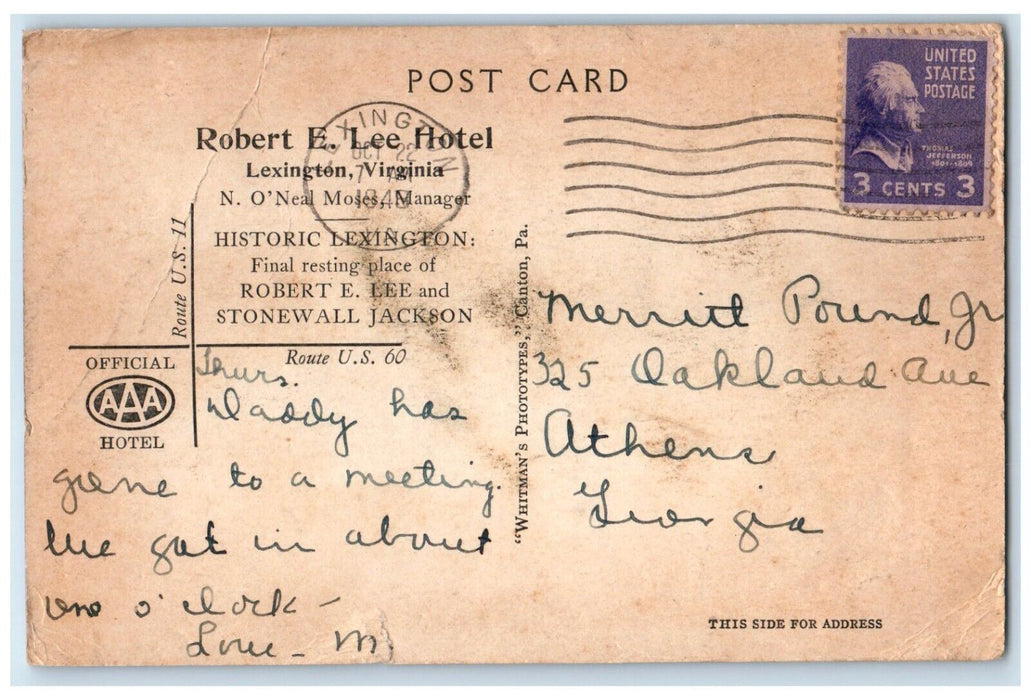 POST CARD
UNITED
STATES
POSTAGE
THOMAS
JEFFERSON
1801-1809
3 CENTS 3
LEXINGTON
OCT 22
7
194
VA
Robert E. Lee Hotel
Lexington, Virginia
N. O'Neal Moses, Manager
HISTORIC LEXINGTON:
Final resting place of
ROBERT E. LEE and
STONEWALL JACKSON
Route U.S. 11
Route U.S. 60
OFFICIAL
AAA
HOTEL
"WHITMAN'S PHOTOTYPES," Canton, Pa.
Thurs.
Daddy has
gone to a meeting.
We got in about
one o'clock -
Love - M
Merritt Pound, Jr
325 Oakland Ave
Athens
Georgia
THIS SIDE FOR ADDRESS